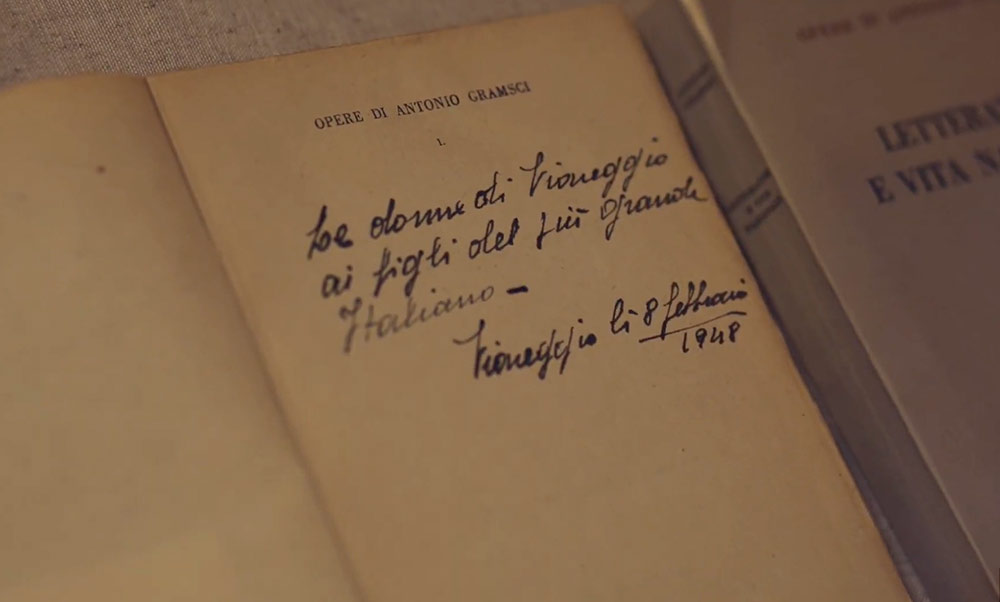 OPERE DI ANTONIO GRAMSCI
I.
Le donne di Viareggio
ai figli del più grande
Italiano –
Viareggio lì 8 febbraio
1948
OPERE DI
LETTERA
E VITA N